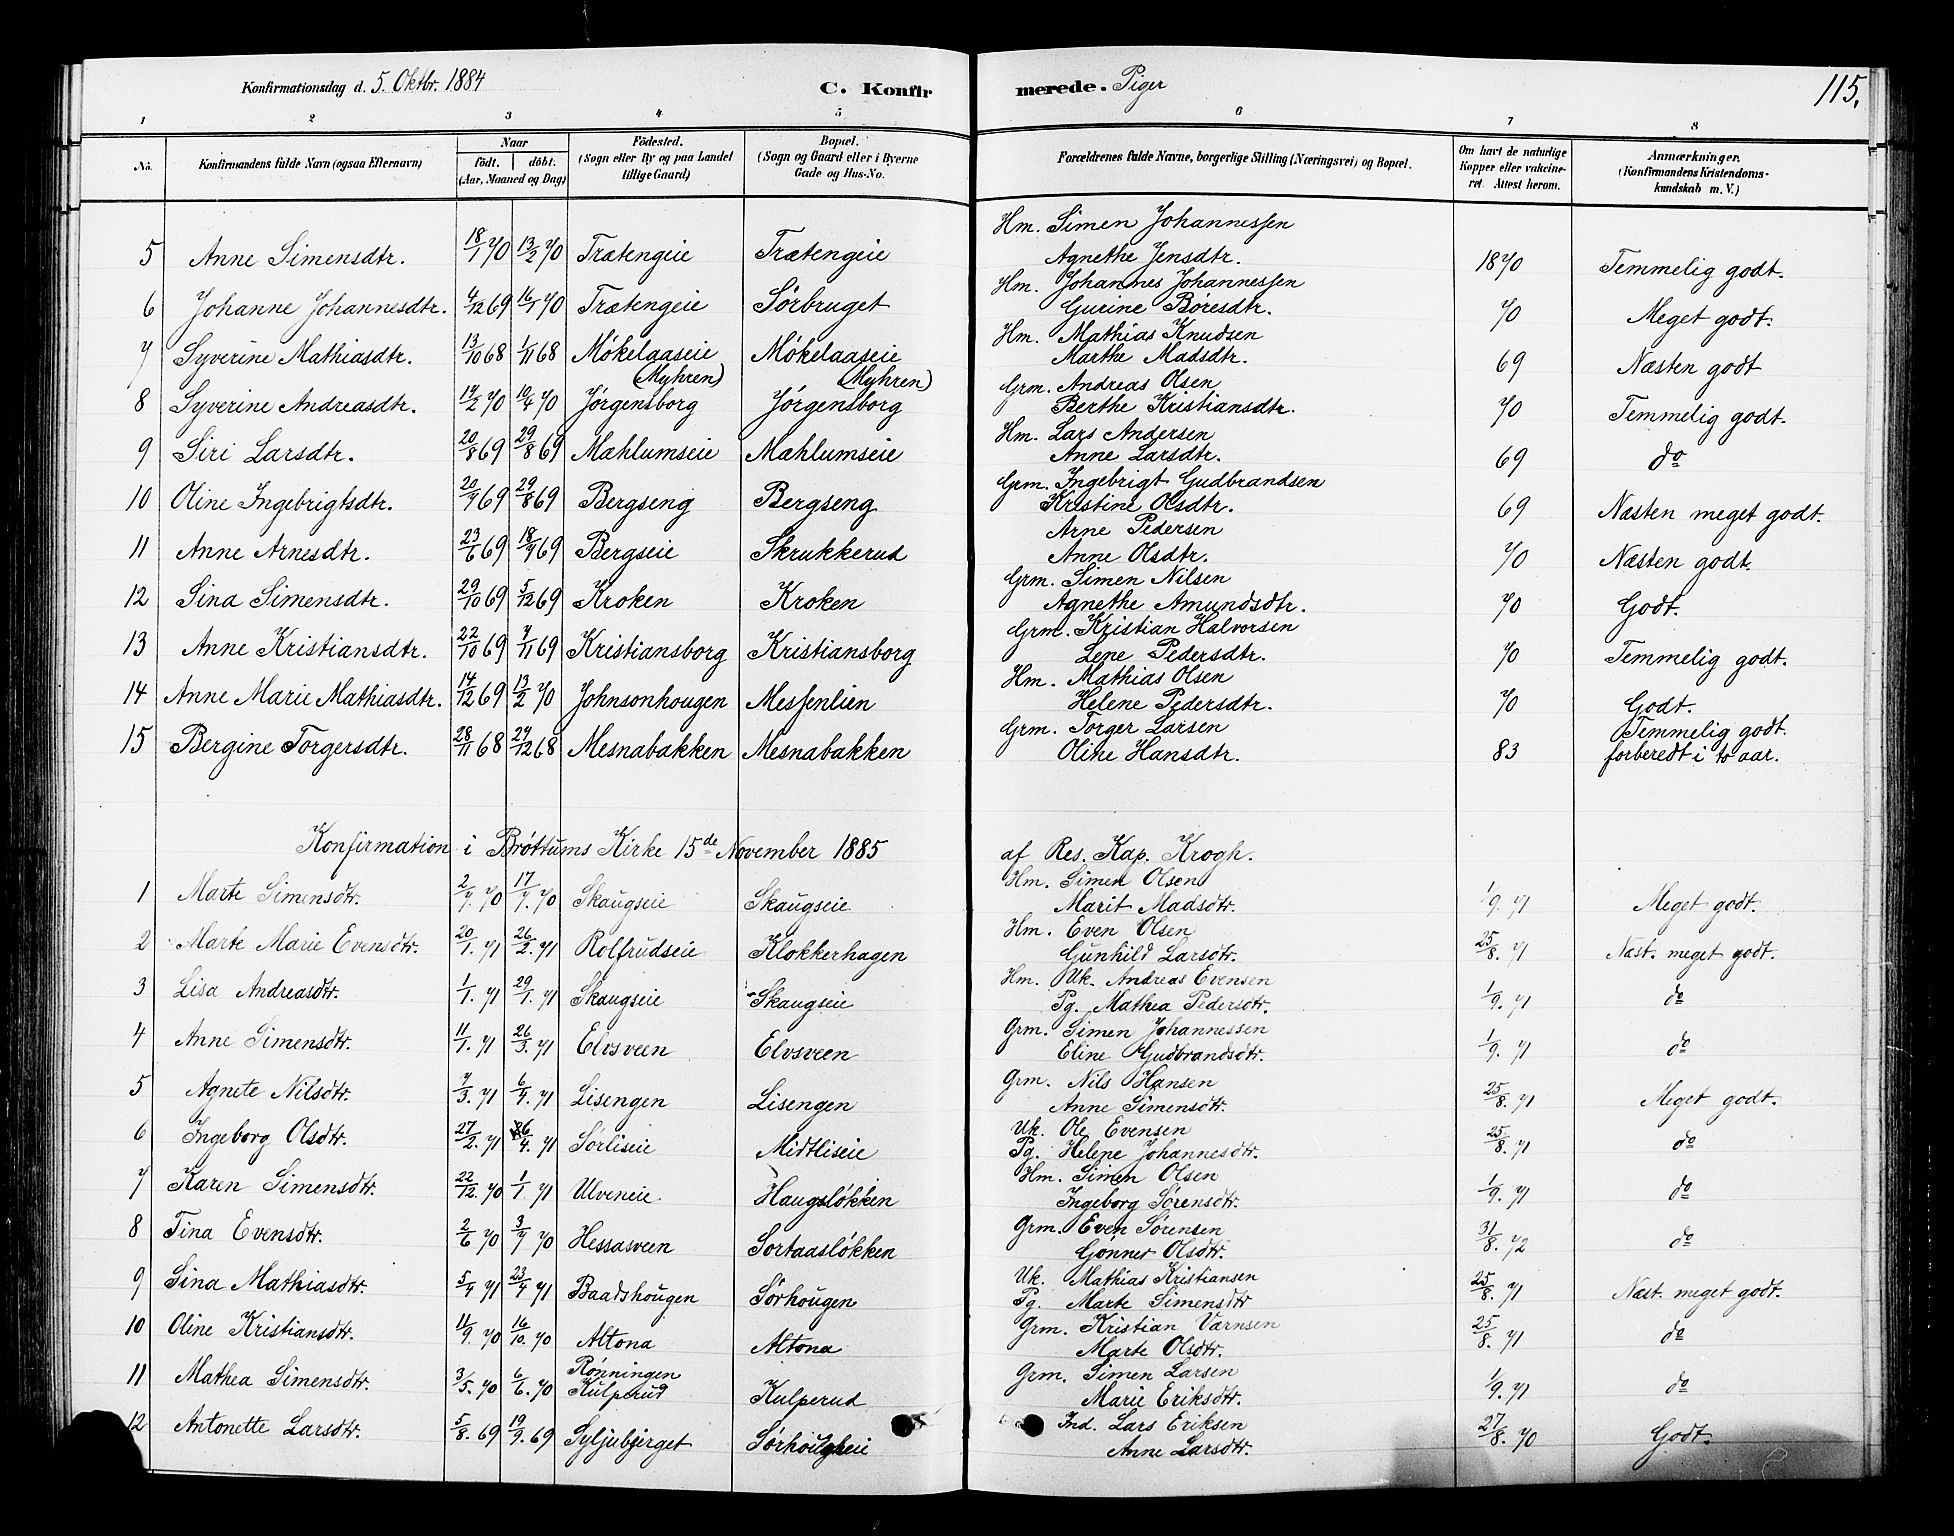 Konfirmationsdag d. 5. Oktbr. 1884 C. Konfirmerede. Piger 115.
1 2 3 4 5 6 7 8
No. Konfirmandens fulde Navn (ogsaa Efternavn) Naar født. døbt. (Aar, Maaned og Dag) Födested. (Sogn eller By og paa Landet tillige Gaard) Bopæl. (Sogn og Gaard eller i Byerne Gade og Hus-No. Forældrenes fulde Navne, borgerlige Stilling (Næringsvei) og Bopæl. Om havt de naturlige Kopper eller vakcineret. Attest herom. Anmærkninger. (Konfirmandens Kristendomskundskab m. V.)
5 Anne Simensdtr. 18/1 70 13/2 70 Trætengeie Trætengeie Hm. Simen Johannessen Agnethe Jensdtr. 1870 Temmelig godt.
6 Johanne Johannesdtr. 4/12 69 16/1 70 Trætengeie Sörbruget Hm. Johannes Johannessen Gurine Böresdtr. 70 Meget godt.
7 Syverine Mathiasdtr. 13/10 68 1/11 68 Møkelaaseie (Myhren) Møkelaaseie (Myhren) Hm. Mathias Knudsen Marthe Madsdtr. 69 Næsten godt
8 Syverine Andreasdtr. 14/2 70 10/4 70 Jørgensborg Jørgensborg Grm. Andreas Olsen Berthe Kristiansdtr. 70 Temmelig godt.
9 Siri Larsdtr. 20/8 69 29/8 69 Mæhlumseie Mæhlumseie Hm. Lars Andersen Anne Larsdtr. 69 do
10 Oline Ingebrigtsdtr. 20/7 69 29/8 69 Bergseng Bergseng Grm. Ingebrigt Gudbrandsen Kristine Olsdtr. 69 Næsten meget godt.
11 Anne Arnesdtr. 23/6 69 18/7 69 Bergseie Skrukkerud Arne Pedersen Anne Olsdtr. 70 Næsten godt.
12 Sina Simensdtr. 29/10 69 5/12 69 Kroken Kroken Grm. Simen Nilsen Agnethe Amundsdtr. 70 Godt.
13 Anne Kristiansdtr. 22/10 69 7/11 69 Kristiansborg Kristiansborg Grm. Kristian Halvorsen Lene Pedersdtr. 70 Temmelig godt.
14 Anne Marie Mathiasdtr. 14/12 69 13/2 70 Johnsonhougen Messenlien Hm. Mathias Olsen Helene Pedersdtr. 70 Godt.
15 Bergine Torgersdtr. 28/11 68 27/12 68 Mesnabakken Mesnabakken Grm. Torger Larsen Oline Hansdtr. 83 Temmelig godt. forberedt i to aar.
Konfirmation i Brøttums Kirke 15de November 1885 af Res. Kap. Krogh.
1 Marte Simensdtr. 2/7. 70 17/7. 70 Skaugseie Skaugseie Hm. Simen Olsen Marit Madsdtr. 1/9. 71 Meget godt.
2 Marte Marie Evensdtr. 20/1. 71 26/2. 71 Rolfrudseie Klokkerhagen Hm. Even Olsen Gunhild Larsdtr. 25/8. 71 Næst. meget godt.
3 Lisa Andreasdtr. 1/1. 71 29/1. 71 Skaugseie Skaugseie Hm. Uk. Andreas Evensen Pg. Mathea Pedersdtr. 1/9. 71 do
4 Anne Simensdtr. 11/1. 71 26/3. 71 Elvsveen Elvsveen Grm. Simen Johannessen Eline Gudbrandsdtr. 1/9. 71 do
5 Agnete Nilsdtr. 7/3. 71 6/4. 71 Lisengen Lisengen Grm. Nils Hansen Anne Simensdtr. 25/8. 71 Meget godt.
6 Ingeborg Olsdtr. 27/2. 71 6/4. 71 Sørliseie Midtliseie Uk. Ole Evensen Pg. Helene Johannesdtr. 25/8. 71 do
7 Karen Simensdtr. 22/12. 70 1/1. 71 Ulveneie Haugsløkken Hm. Simen Olsen Ingeborg Sørensdtr. 1/9. 71 do
8 Tina Evensdtr. 2/6 70 3/7 70 Hessasveen Sortaasløkken Grm. Even Sørensen Gønner Olsdtr. 31/8. 72 do
9 Sina Mathiasdtr. 5/4 71 23/4 71 Baadshougen Sørhougen Uk. Mathias Kristiansen Pg. Marte Simensdtr 25/8. 71 Næst. meget godt.
10 Oline Kristiansdtr. 11/9. 70 16/10. 70 Altona Altona Grm. Kristian Værnsen Marte Olsdtr. 25/8. 71 do
11 Mathea Simensdtr. 3/5. 70 6/6. 70 Rønningen Kulperud Kulperud Grm. Simen Larsen Marie Eriksdtr. 1/9. 71 do
12 Antonette Larsdtr. 5/8. 69 19/9. 69 Syljubjerget Ind. Lars Eriksen Anne Larsdtr. 27/8. 70 Godt.